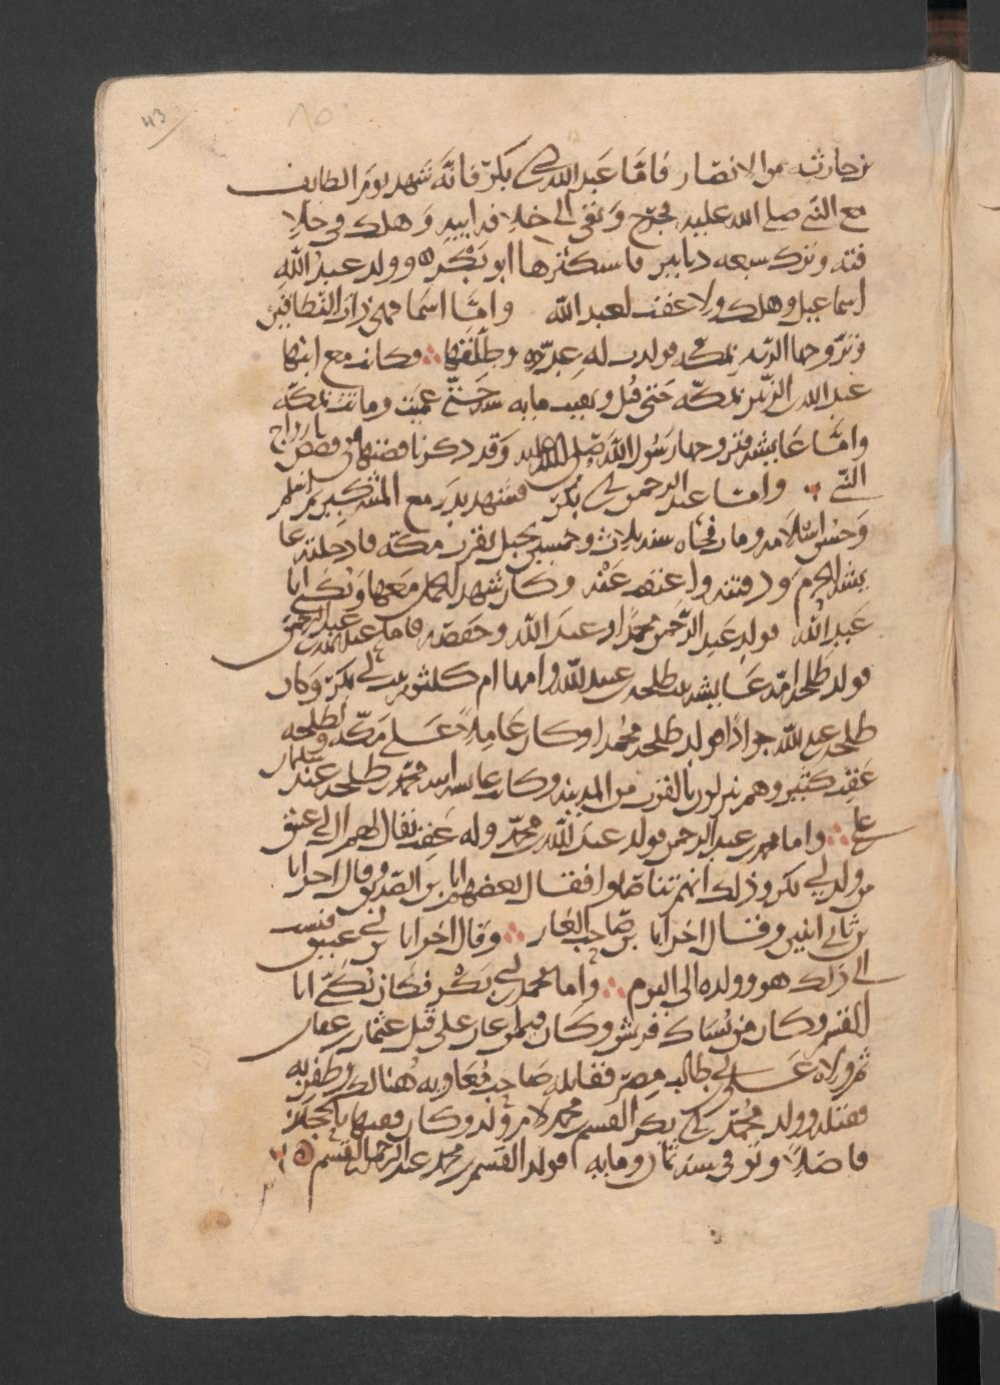 43
بن حارثه من الانصار فاما عبد الله بن ابي بكر فانه شهد يوم الطايف
مع النبي صلى الله عليه فجرح وبقي الى خلافه ابيه وهلك في خلا
فته وترك سبعه دنانير فاستكثرها ابو بكر ه وولد عبد الله
اسماعيل وهلك ولا عقب لعبد الله واما اسما فهي ذات النطاقين
وتزوجها الزبير بمكه فولدت له عده وطلقها وكانت مع ابنها
عبد الله بن الزبير بمكه حتى قتل وبقيت مايه سنه حتى عميت وماتت بمكه
واما عايشه فتزوجها رسول الله صلى الله عليه وقد ذكرنا قصتها في قصص ازواج
النبي واما عبد الرحمن بن ابي بكر فشهد بدر مع المشركين ثم اسلم
وحسن اسلامه ومات فجاه سنه ثلاث وخمسين بجبل بقرب مكه فادخلته عا
يشه الحرم ودفنته واعتقت عنه وكان شهد الجمل معها ويكنى ابا
عبد الله فولد عبد الرحمن محمدا وعبد الله وحفصه فاما عبد الله بن عبد الرحمن
فولد طلحه امه عايشه بنت طلحه بن عبيد الله وامها ام كلثوم بنت ابي بكر وكان
طلحه بن عبد الله جوادا فولد طلحه محمدا وكان عاملا على مكه ولطلحه
عقب كثير وهم ينزلون بالقرب من المدينه وكان محمد بن طلحه عند سليمان
بن علي واما محمد بن عبد الرحمن فولد عبد الله بن محمد وله عقب يقال لهم ال ابي عتيق
من ولد ابي بكر وذلك انهم تناضلوا فقال بعضهم انا بن الصديق وقال اخر انا
بن ثاني اثنين وقال اخر انا بن صاحب الغار وقال اخر انا بن ابي عتيق فنسب
الى ذلك هو وولده الى اليوم واما محمد بن ابي بكر فكان يكنى ابا
القسم وكان من نساك قريش وكان فيمن اعان على قتل عثمان بن عفان
ثم ولاه علي بن ابي طالب مصر فقاتله صاحب معاويه هنالك وظفر به
فقتله وولد محمد بن ابي بكر القسم بن محمد لام ولد وكان فقيها بالحجاز
فاضلا وتوفي سنه ثمان ومايه فولد القسم بن محمد عبد الرحمن بن القسم